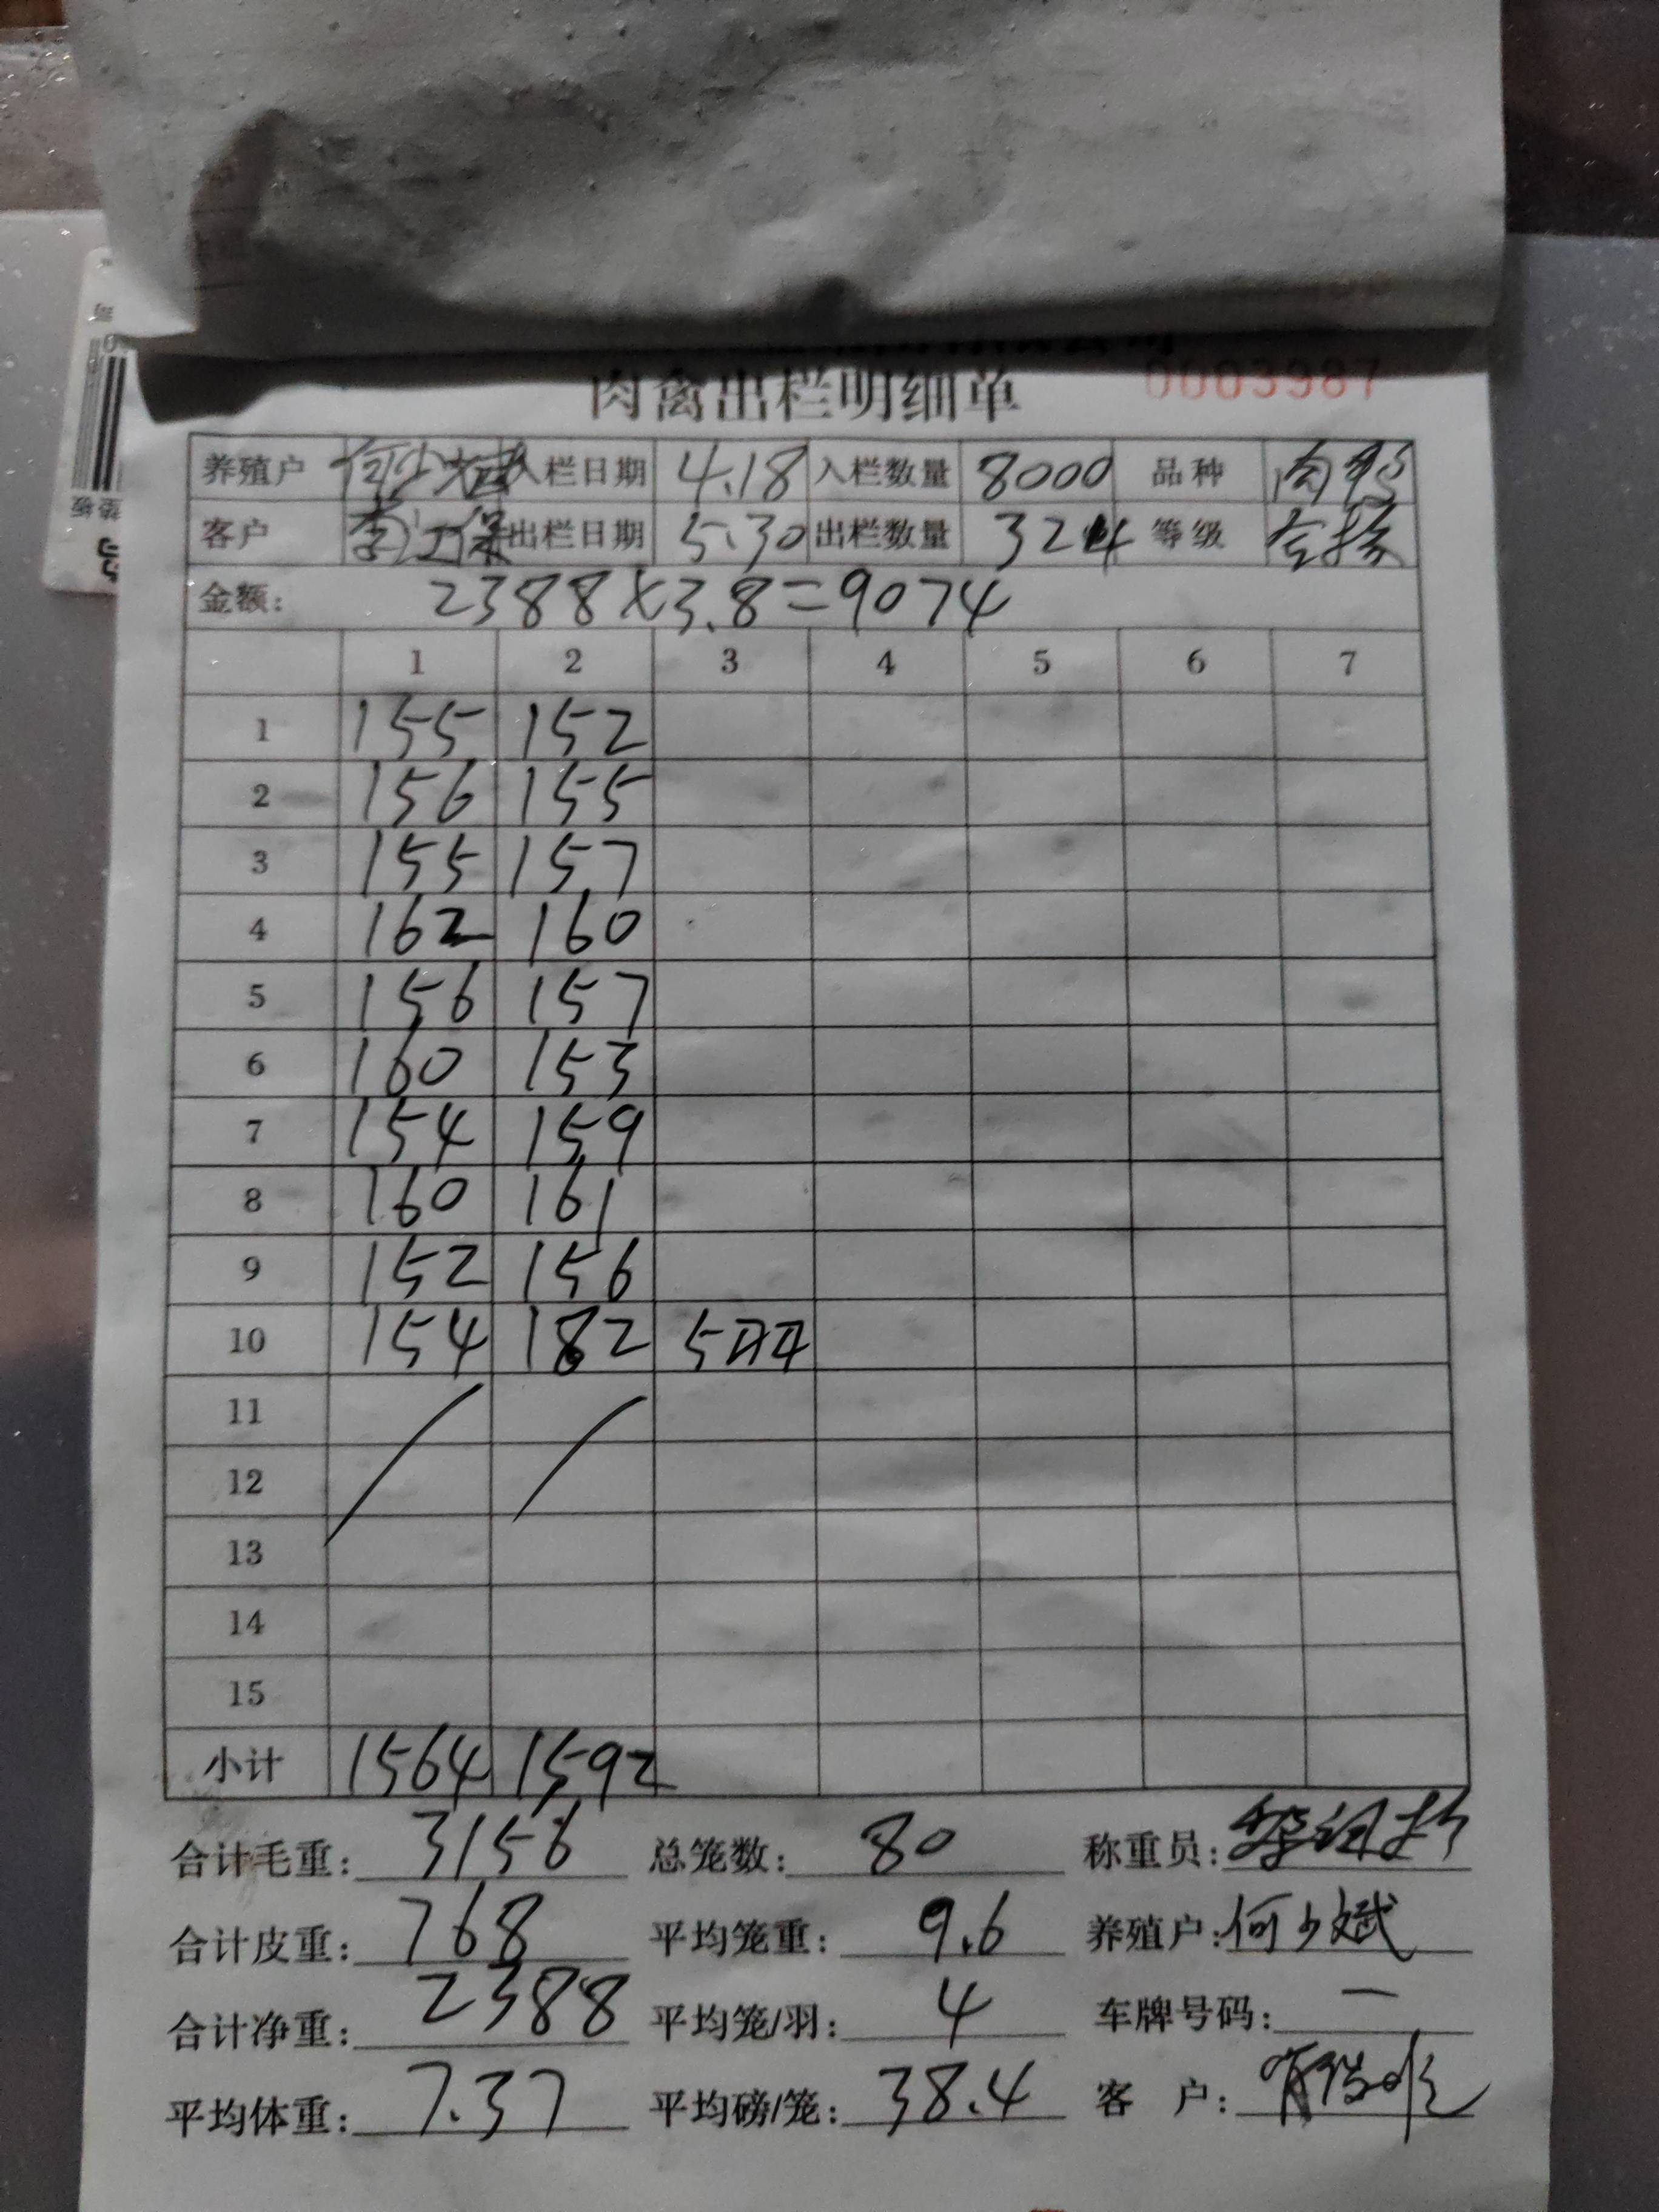 肉禽出栏明细单 0003987
养殖户 何少斌 入栏日期 4.18 入栏数量 8000 品种 肉鸭
客户 出栏日期 5.30 出栏数量 324 等级
金额: 2388×3.8=9074
1 2 3 4 5 6 7
1 155 152
2 156 155
3 155 157
4 162 160
5 156 157
6 160 153
7 154 159
8 160 161
9 152 156
10 154 182 5
11
12
13
14
15
小计 1564 1592
合计毛重: 3156 总笼数: 80 称重员:
合计皮重: 768 平均笼重: 9.6 养殖户: 何少斌
合计净重: 2388 平均笼/羽: 4 车牌号码: 一
平均体重: 7.37 平均磅/笼: 38.4 客 户: